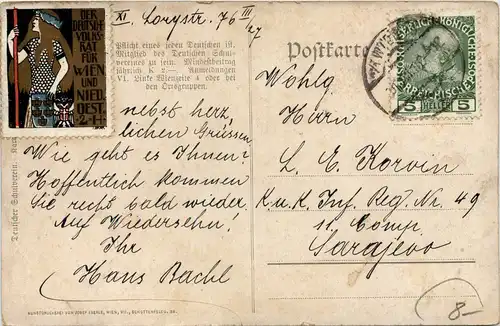 DER
DEUTSCHE
VOLKS-
RAT FÜR
WIEN
UND
NIED.
OEST.
2·H·
XI. Lorystr. 76 III/27
Pflicht eines jeden Deutschen ist,
Mitglied des Deutschen Schul-
vereines zu sein. Mindestbeitrag
jährlich K 2—. Anmeldungen
VI. Linke Wienzeile 4 oder bei
den Ortsgruppen.
nebst herz,
lichen Grüssen.
Wie geht es Ihnen?
Hoffentlich kommen
Sie recht bald wieder.
Auf Wiedersehn!
Ihr
Hans Bachl
Deutscher Schulverein
KUNSTDRUCKEREI VON JOSEF EBERLE, WIEN, VII., SCHOTTENFELDG. 38.
Postkarte
5 HELLER 5
Wohlg.
Herrn
L. E. Korvin
K. u. K. Inf. Reg. Nr. 49
11. Comp.
Sarajevo
8-